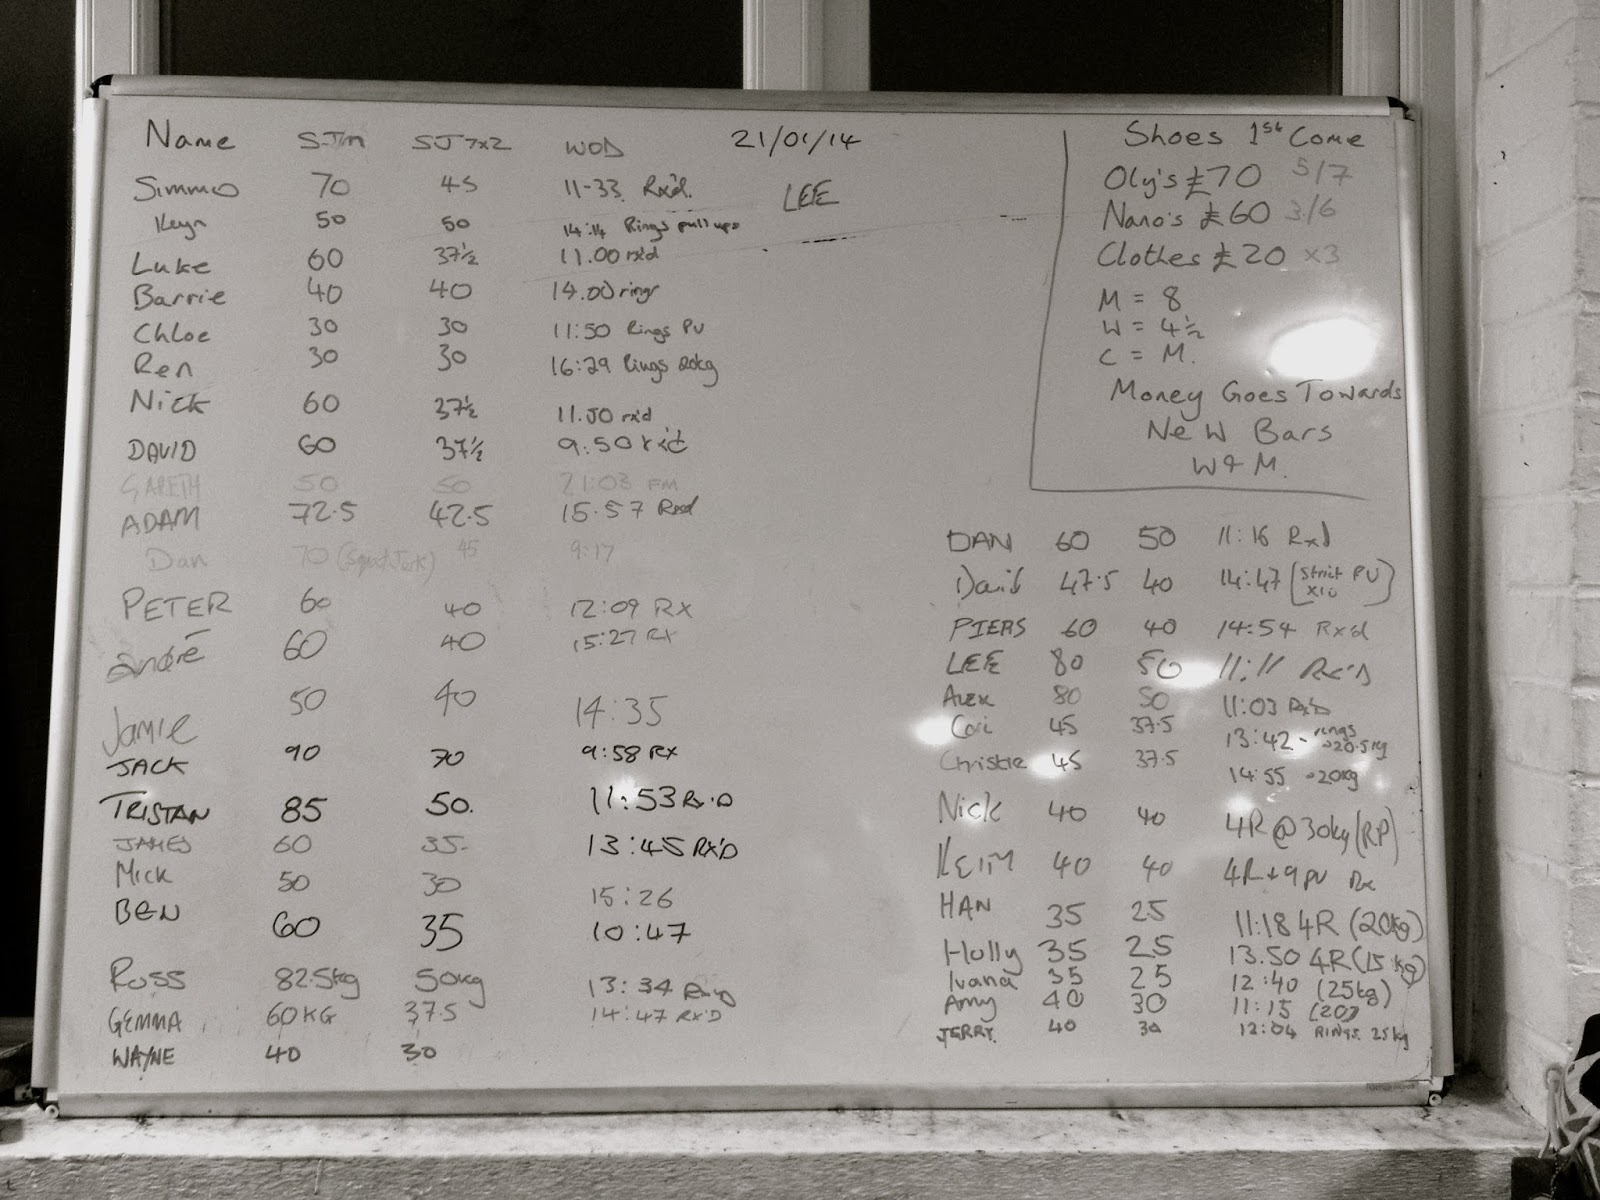 Name SJM SJ 7x2 WOD 21/01/14
Simmo 70 45 11-33 Rx'd.
LEE
50 50 14:14 Rings pull ups
Luke 60 37½ 11.00 rx'd
Barrie 40 40 14.00 rings
Chloe 30 30 11:50 Rings PU
Ren 30 30 16:29 Rings 20kg
Nick 60 37½ 11.50 rx'd
DAVID 60 37½ 9:50 rx'd
GARETH 50 50 21:03 FM
ADAM 72.5 42.5 15.57 Rxd
Dan 70 (Squat Jerk) 45 9:17
PETER 60 40 12:09 RX
André 60 40 15:27 RX
Jamie 50 40 14:35
JACK 90 70 9:58 RX
TRISTAN 85 50. 11:53 Rx'D
JAMES 60 35- 13:45 RX'D
Mick 50 30 15:26
BEN 60 35 10:47
Ross 82.5kg 50kg 13:34 Rx'D
GEMMA 60KG 37.5 14:47 RX'D
WAYNE 40 30
Shoes 1st Come
Oly's £70 5/7
Nano's £60 3/6
Clothes £20 x3
M = 8
W = 4½
C = M.
Money Goes Towards
New Bars
W & M.
DAN 60 50 11:16 Rxd
David 47.5 40 14:47 (Strict PU x10)
PIERS 60 40 14:54 Rx'd
LEE 80 50 11:11 Rx'D
ALEX 80 50 11:03 Rx'D
Cori 45 37.5 13:42 - rings 20.5kg
Christie 45 37.5 14:55 -20kg
Nick 40 40 4R @ 30kg (RP)
KEIM 40 40 4R + 9 PU Rx
HAN 35 25 11:18 4R (20kg)
Holly 35 25 13.50 4R (15kg)
Ivana 35 25 12:40 (25kg)
Amy 40 30 11:15 (20)
JERRY. 40 30 12:04 RINGS. 25kg